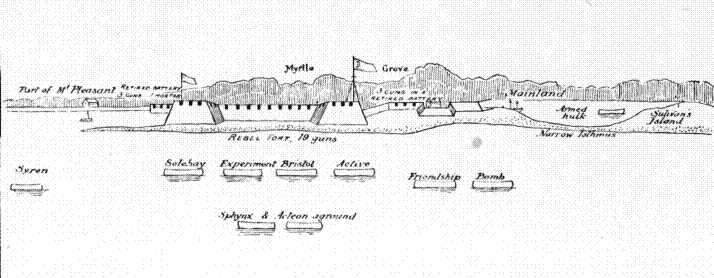 Myrtle Grove
Part of Mt Pleasant
RETIRED BATTERY
3 GUNS 1 MORTAR
3 GUNS IN A
RETIRED BATTERY
Mainland
Armed
hulk
Sulivan's
Island
REBEL FORT, 19 guns
Narrow Isthmus
Syren
Solebay
Experiment
Bristol
Active
Friendship
Bomb
Sphynx & Acteon aground